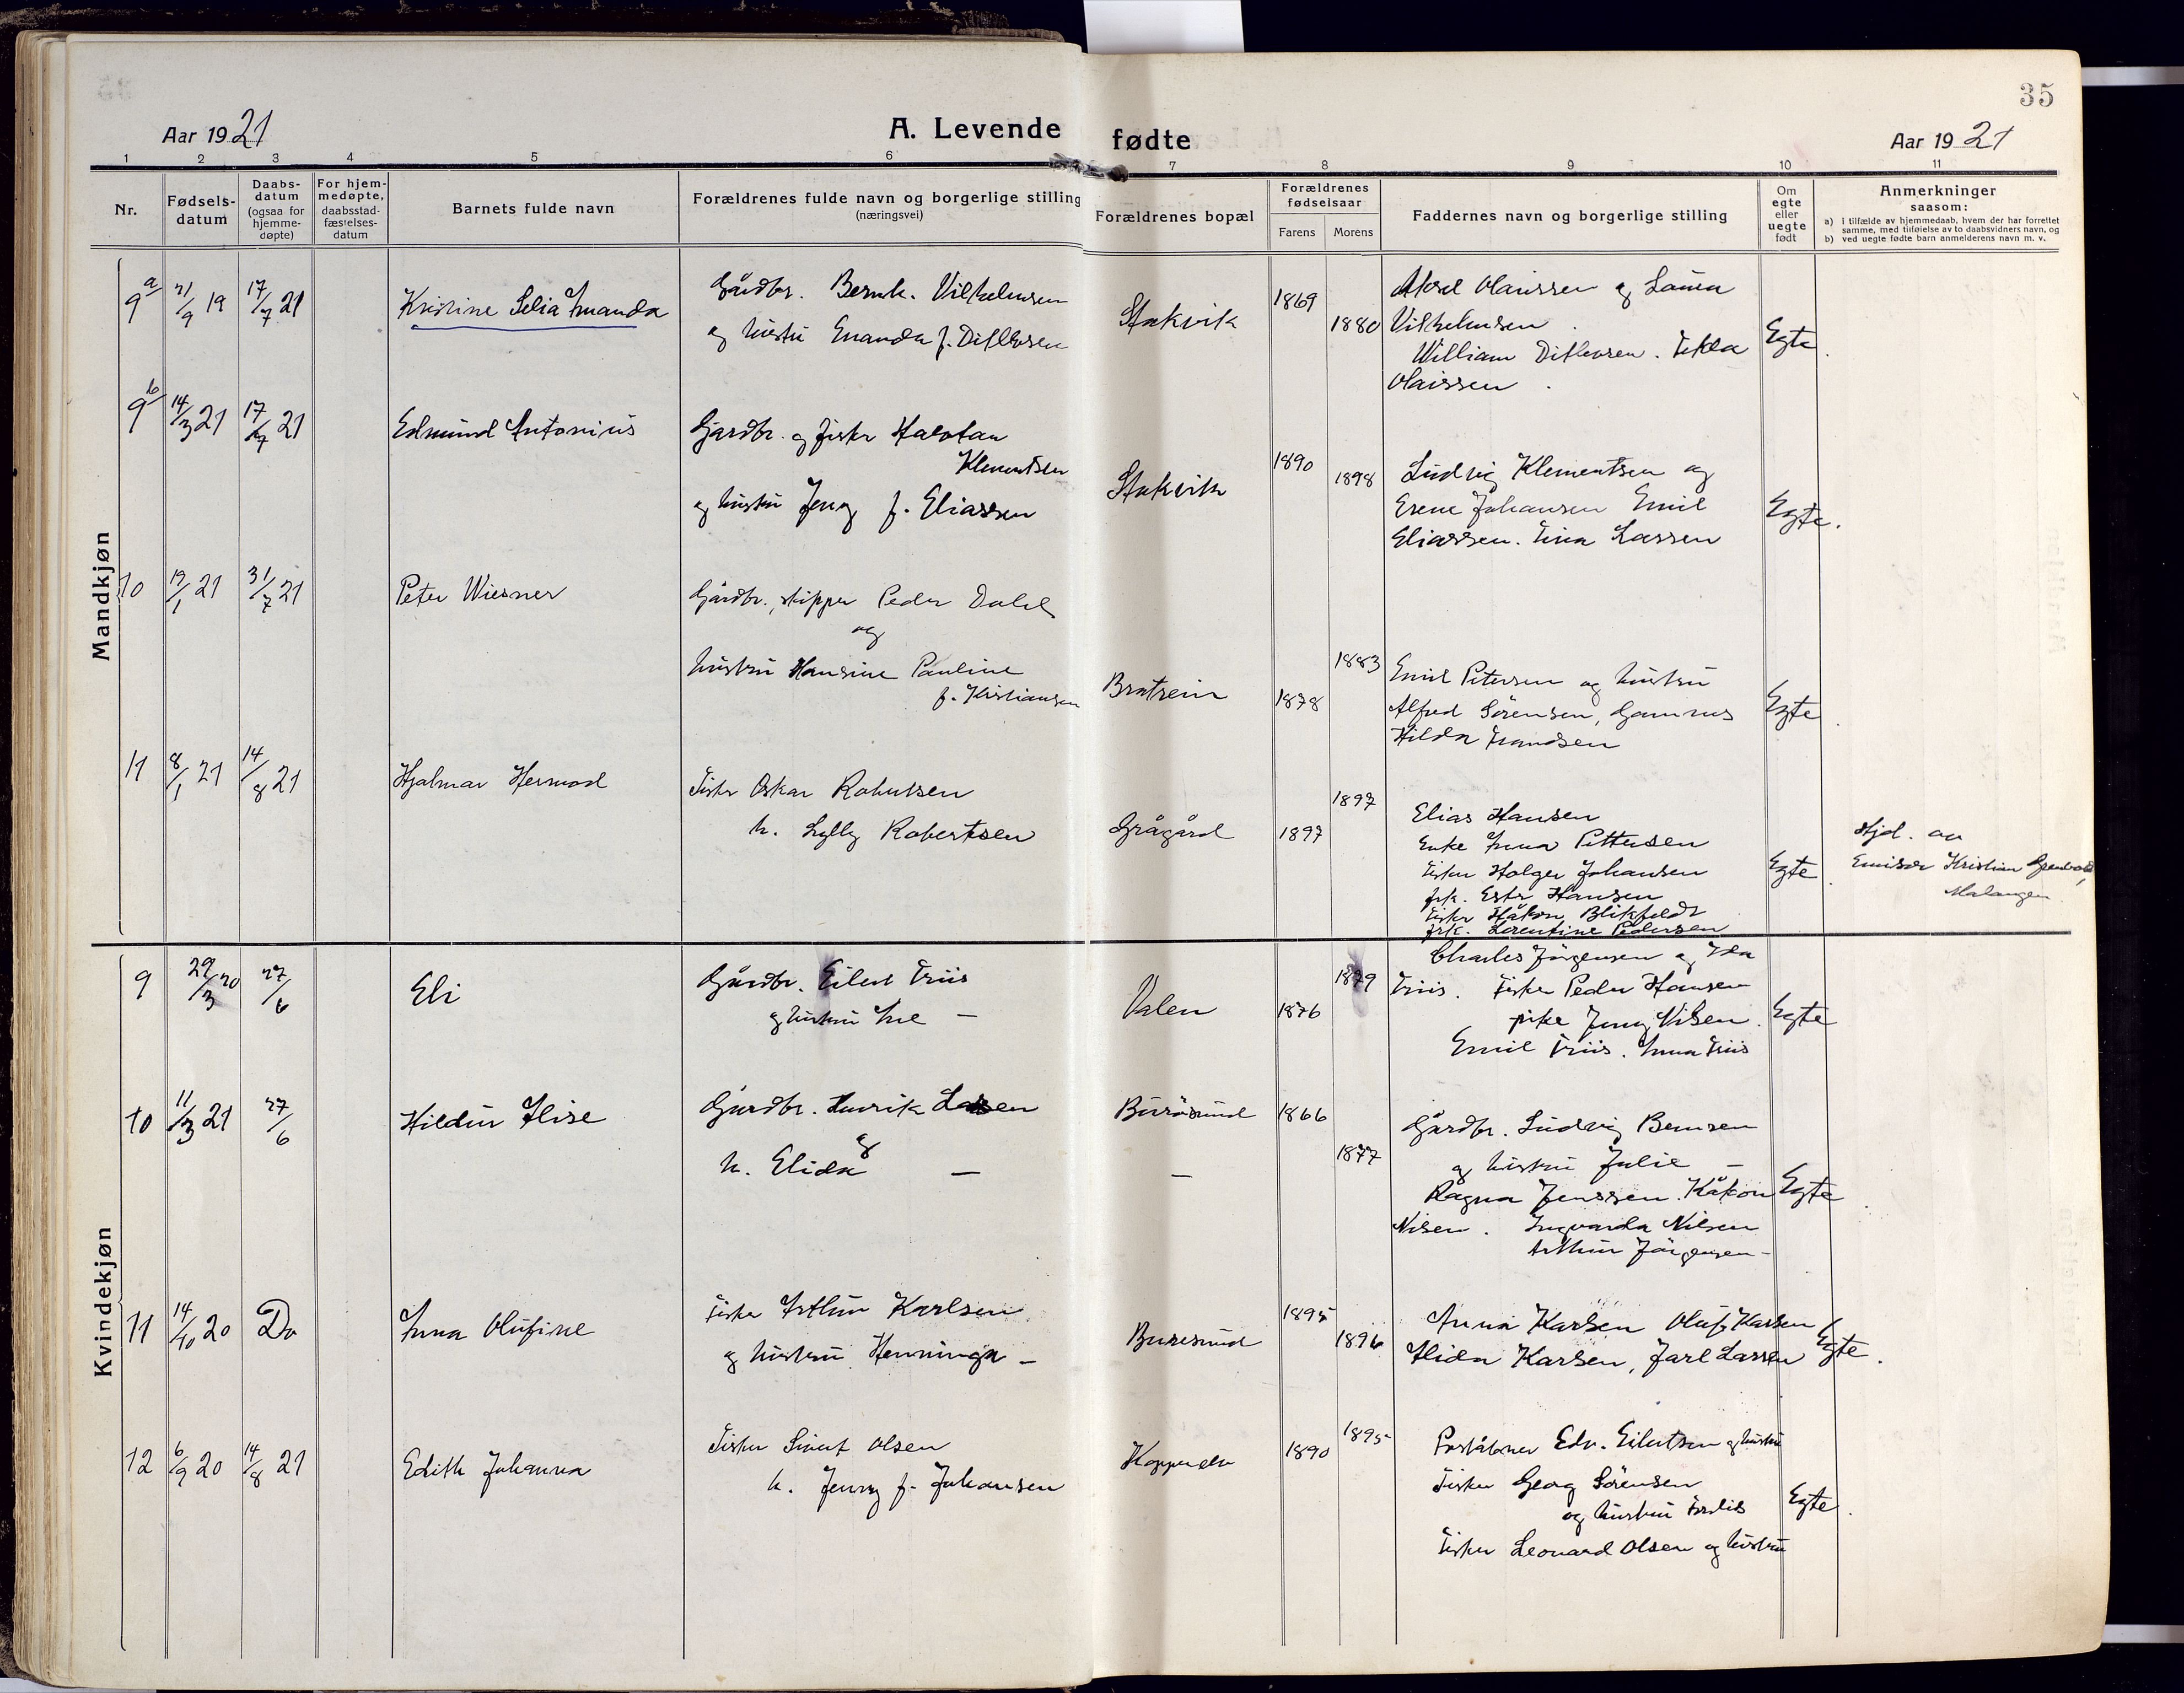 35
Aar 1921
A. Levende fødte
Aar 1921
1 2 3 4 5 6 7 8 9 10 11
Nr.
Fødsels-
datum
Daabs-
datum
(ogsaa for
hjemme-
døpte)
For hjem-
medøpte,
daabsstad-
fæstelses-
datum
Barnets fulde navn
Forældrenes fulde navn og borgerlige stilling
(næringsvei)
Forældrenes bopæl
Forældrenes
fødselsaar
Farens
Morens
Faddernes navn og borgerlige stilling
Om
egte
eller
uegte
født
Anmerkninger
saasom:
a) i tilfælde av hjemmedaab, hvem der har forrettet
samme, med tilføielse av to daabsvidners navn, og
b) ved uegte fødte barn anmelderens navn m. v.
Mandkjøn
9a
21/9 19
17/7 21
Kristine Selia Amanda
Gårdbr. Bernh. Vilhelmsen
og hustru Emanda f. Ditlefsen
Stakvik
1869
1880
Aksel Olaussen og Laura
Vilhelmsen
William Ditlevsen. Tekla
Olaissen
Egte
9b
14/3 21
17/7 21
Edmund Antonius
Gardbr. og fisker Halvdan
Klementsen
og hustru Jeny f. Eliassen
Stakvik
1890
1898
Ludvig Klementsen og
Erene Johansen Emil
Eliassen. Tina Larsen
Egte.
10
19/1 21
31/7 21
Peter Wiesner
Gårdbr., skipper Peder Dahl
og
hustru Hansine Pauline
f. Kristiansen
Bratrein
1878
1883
Emil Petersen og hustru
Alfred Sörensen,
Hilda Frandsen
Egte
11
8/1 21
14/8 21
Hjalmar Hermod
Fisker Oskar Robertsen
h. Lylly Robertsen
Grågård
1897
1897
Elias Hansen
Enke Anna Pettersen
Fisker Holger Johansen
frk. Ester Hansen
Fisker Håkon Blikfeldt
frk. Lorentine Pedersen
Egte
Hjd. av
Emisær Kristian
Malangen
Kvindekjøn
9
29/3 20
27/6
Eli
Gårdbr. Eilert Friis
og hustru Ane —
Valen
1876
1879
Charles Jörgensen og Ida
Friis. Fisker Peder Hansen
pike Jenny Nilsen.
Emil Friis. Anna Friis
Egte
10
11/3 21
27/6
Hildur Elise
Gårdbr. Henrik Larsen
og
h. Elida —
Burösund
—
1866
1877
Gårdbr. Ludvig Berntsen
og hustru Julie —
Ragna Jenssen. Håkon
Nilsen. Ingvarda Nilsen
Arthur Jörgensen —
Egte
11
14/10 20
Do
Anna Olufine
Fisker Arthur Karlsen
og hustru Henninga —
Buresund
1895
1896
Anna Karlsen Oluf Karlsen
Alida Karlsen, Jarl Larsen
Egte.
12
6/9 20
14/8 21
Edith Johanna
Fisker Sivert Olsen
h. Jenny f. Johansen
1890
1895
Poståbner Edv. Eilertsen og hustru
Fisker Georg Sörensen
og hustru
Fisker Leonard Olsen og hustru
Egte.